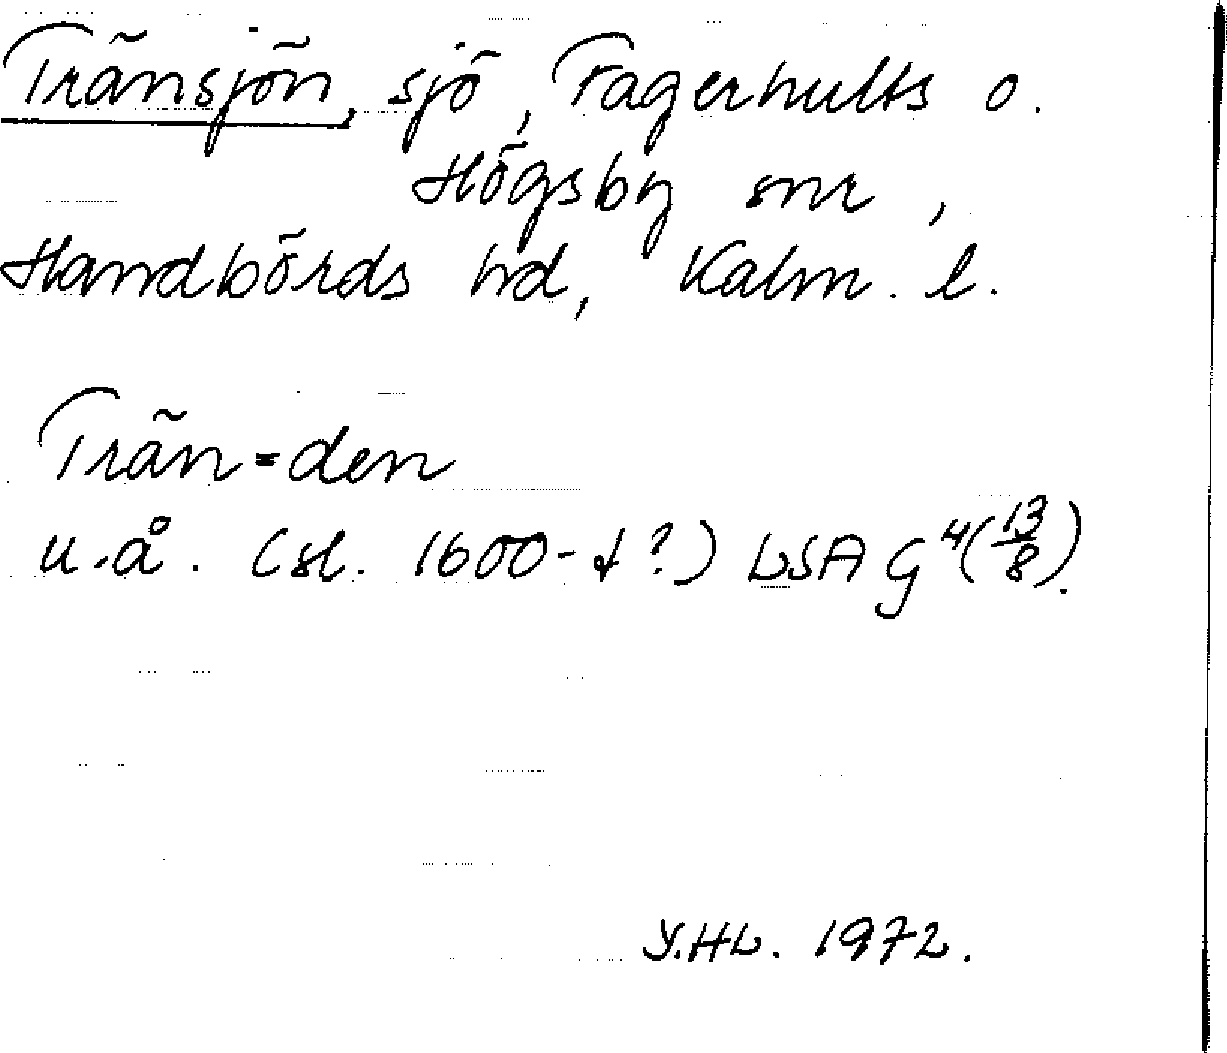 Tränsjön, sjö, Fagerhults o.
Högsby snr,
Handbörds hd, Kalm. l.
Trän=den
u.å. (sl. 1600-t?) LSA G⁴(13/8).
Y.HL. 1972.